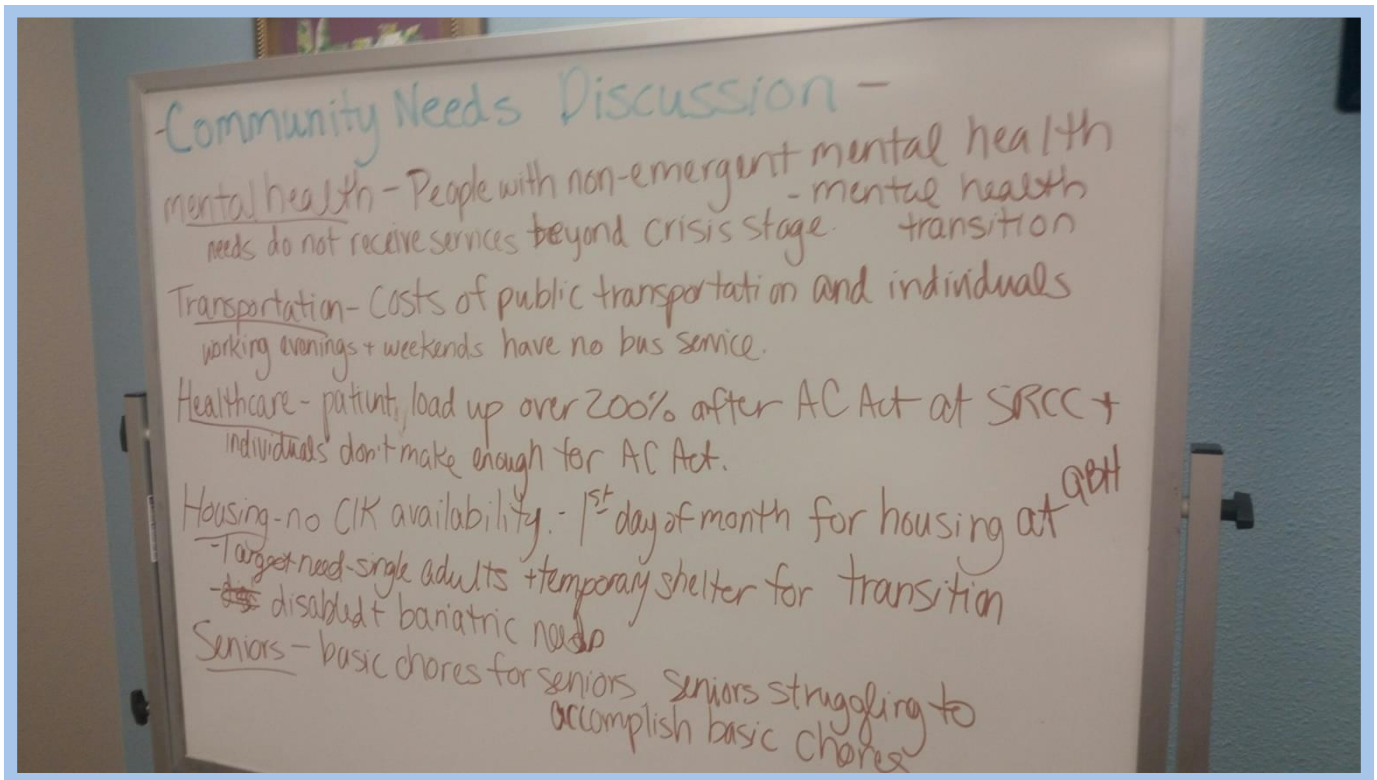 -Community Needs Discussion-
mental health - People with non-emergent mental health
needs do not receive services beyond crisis stage.
- mental health
transition
Transportation - Costs of public transportation and individuals
working evenings + weekends have no bus service.
Healthcare - patient load up over 200% after AC Act at SRCC +
individuals don't make enough for AC Act.
Housing - no CIK availability. - 1st day of month for housing at GBH
- Target need - single adults + temporary shelter for transition
- disabled + bariatric needs
Seniors - basic chores for seniors seniors struggling to
accomplish basic chores